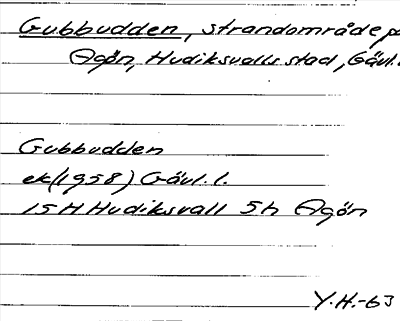 Gubbudden, strandområde på
Agön, Hudiksvalls stad, Gävl.
Gubbudden
ek(1958) Gävl. l.
15H Hudiksvall 5h Agön
Y.H.-63